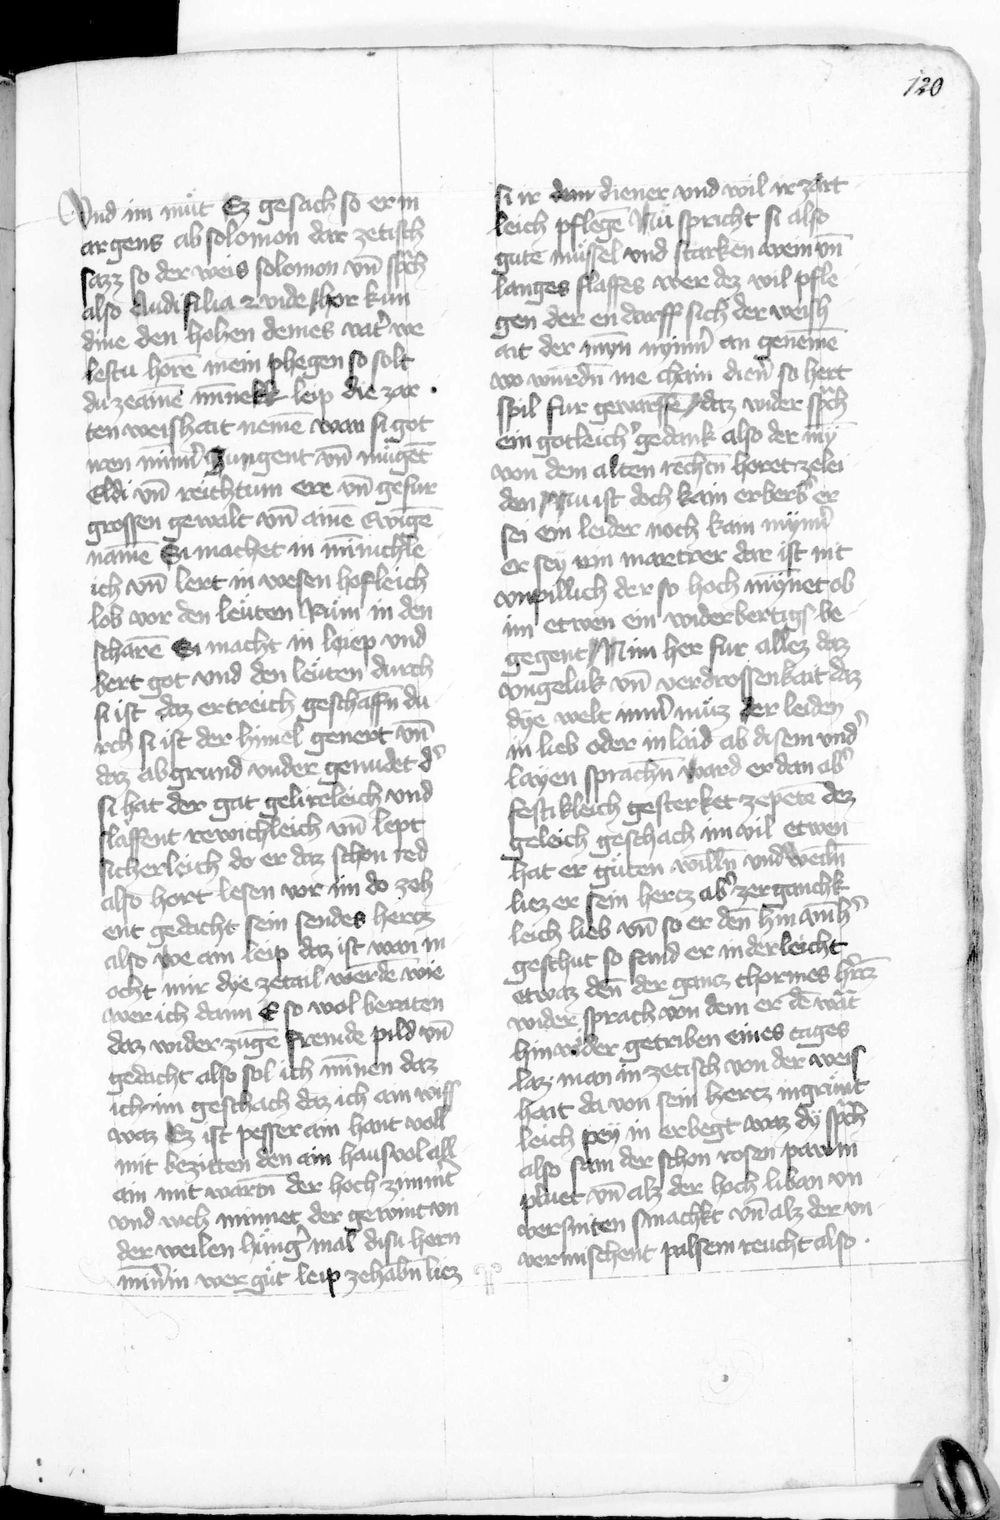 120
Vnd im müt Ez gesach so er in
argens ab solomon dar zetisch
sazz so der weis solomon vn̄ sp̄ch
also Audi filia ⁊ vide hor kün
dine den hohen demes vat̾ we
lestu horē mein phlegen so solt
du zeainē mīnekk leip die zar
ten weishait nemē wan si got
nen mīnn̾ Jungent vn̄ mügēt
Eldi vn̄ reichtum ere vn̄ gefur
grossen gewalt vn̄ ainē Ewigē
namē Si machet in mīnichle
ich vn̄ lert in wesen hofleich
lob vor den leüten Rüm in den
scharē Si macht in leiep vnd
bert got vnd den leüten durch
si ist daz ertreich geschaffn̄ du
rch si ist der himel genert vn̄
daz abgrund vnder gemudet d̾
si hat der gat gelireleich vnd
slaffent rewichleich vn̄ lept
sicherleich do er daz schon red
also hort lesen vor im do zeh
ent gedacht sein sendes hertz
also we am leip daz ist wan in
ocht mir dye zetail werde wie
wer ich dann E so wol beraten
daz wider zugē fremde pild vn̄
gedacht also sol ich mīnen daz
ich im geschach daz ich ain wiss
waz Ez ist pesser ain hant voll
mit bezitten den ain haus vol all
ain mit warn̄ der hoch zimmt̾
vnd welz minnet der gewint vn
der weilen hüng̾ mal disu hern
mīn̾in wer güt leip zehabn̄ liez
si ir dem diener vnd wil ir zart
leich pflegē Nu spricht si also
gute müssel vnd starken wein vn̄
langes slaffes wer dez wil pfle
gen der en darff sich der weish
ait der mȳn nyīm̾ an genemē
wo wurdn̄ me chain dien̾ so hert
spil fur geworffē daz wider sp̄ch
ein gotleich̾ gedank also der mȳ
von dem alten rechtn̄ horet zelei
den Nu ist doch kain erberb̾ er
sei ein leider noch kain mȳnn̾
er sey um martrer dar ist nit
vnpillich der so hoch mȳnet ob
im etwen ein widerbertigs be
gegent Nim her fur allez daz
vngeluk vn̄ verdrossenkait daz
dye welt imm̾ müz der leiden
in lieb oder in laid ab disem vnd̾
layen sprachn̄ ward er dan ab̾
festikleich gesterket zepetē dez
geleich geschach im vil etwen
hat er güten willn̄ vnd weiln̄
liez er sein hertz ab̾ zerganchk
leich lieb vn̄ so er den̄ hin ainh̾
geschut so fand er in der leicht
etwaz den̄ der gancz thormes h̾tz
wider sprach von dem er dē wāt
hin wider getriben eines tages
laz man in zetisch von der weis
hait da von sein hertz ingrümt
leich pey in erbegt waz dy sp̄ch
also sam der schon rosen pawm
pluet vn̄ alz der hoch liban vn
versniten smachkt vn̄ alz der vn
vermischent palsem reucht also